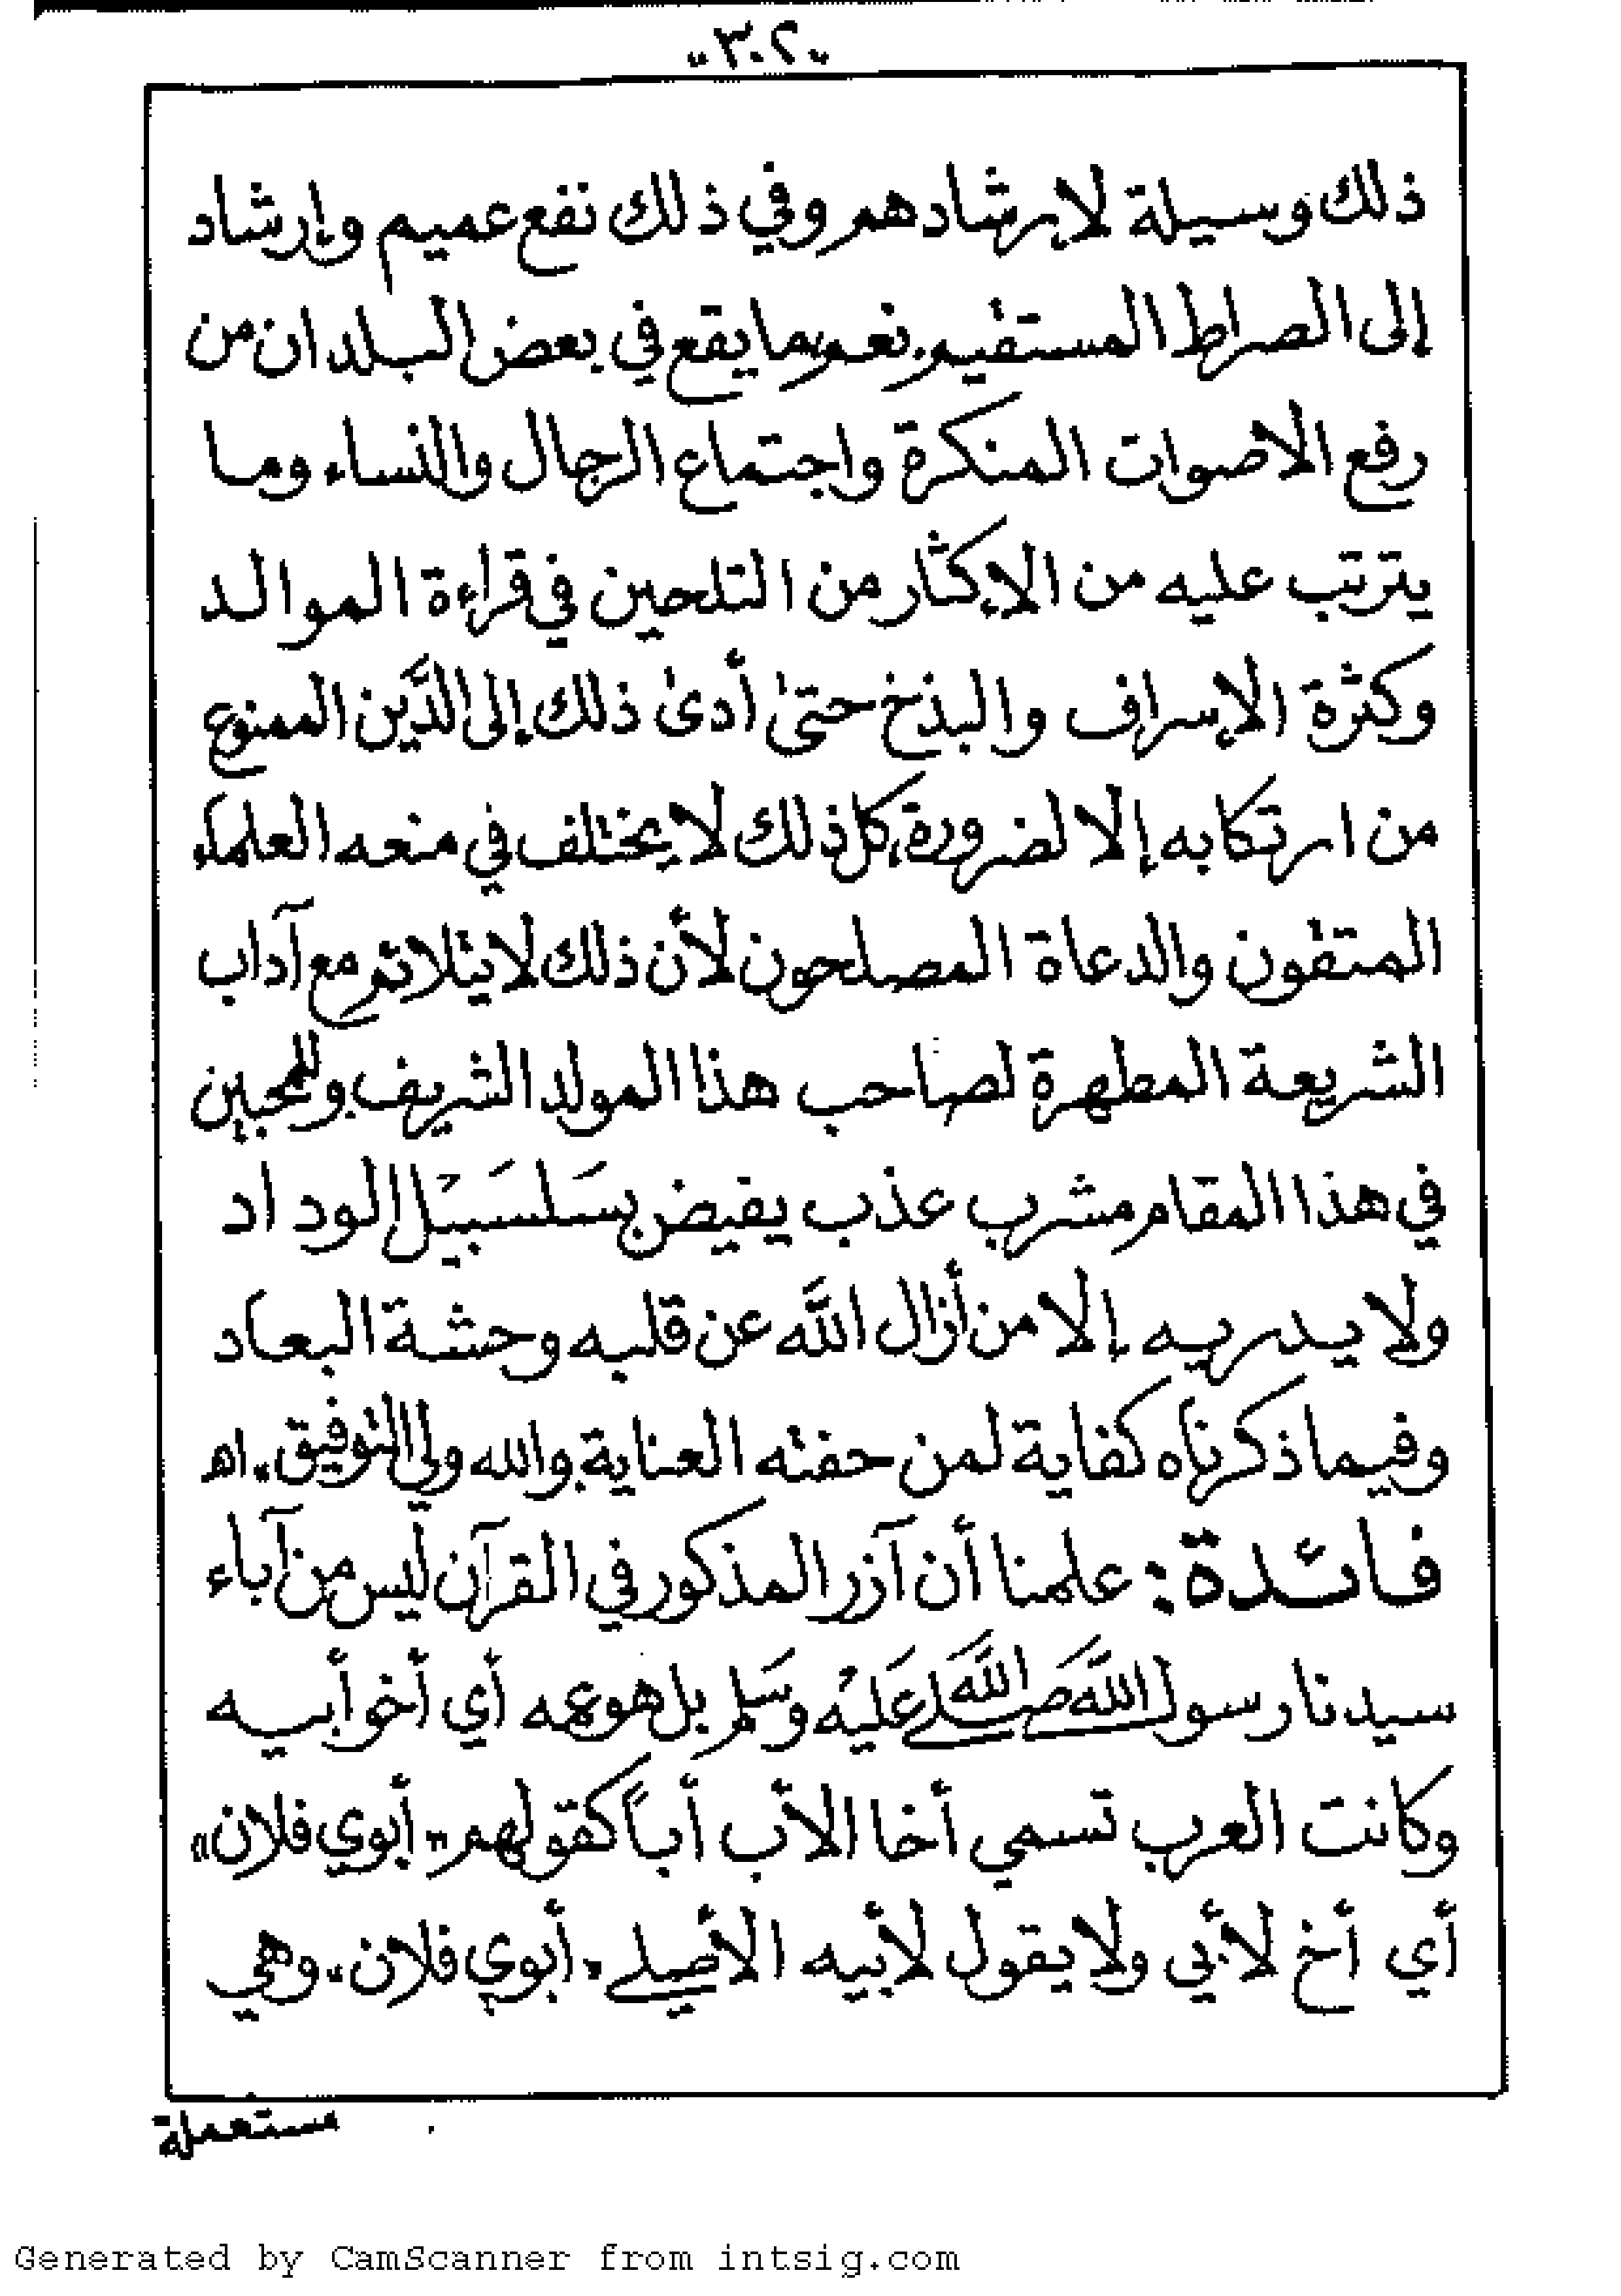 "٣٠٢"
ذلك وسيلة لإرشادهم وفي ذلك نفع عميم وإرشاد
إلى الصراط المستقيم. نعم ما يقع في بعض البلدان من
رفع الأصوات المنكرة واجتماع الرجال والنساء وما
يترتب عليه من الإكثار من التلحين في قراءة الموالد
وكثرة الإسراف والبذخ حتىٰ أدىٰ ذلك إلى الدَّين الممنوع
من ارتكابه إلا لضرورة، كل ذلك لا يختلف في منعه العلماء
المتقون والدعاة المصلحون لأن ذلك لا يتلائم مع آداب
الشريعة المطهرة لصاحب هذا المولد الشريف. وللمحبين
في هذا المقام مشرب عذب يفيض بسَلسَبيْل الوداد
ولا يدريه إلا من أزال اللَّه عن قلبه وحشة البعاد
وفيما ذكرناه كفاية لمن حفته العناية. والله ولي التوفيق، اهـ
فائدة: علمنا أن آزر المذكور في القرآن ليس من آباء
سيدنا رسول اللَّه صَلى اللَّه عَليْه وسَلم بل هو عمه أي أخو أبيه
وكانت العرب تسمي أخا الأب أباً كقولهم "أبوي فلان"
أي أخ لأبي ولا يقول لأبيه الأصلي "أبوي فلان" وهي
مستعملة
Generated by CamScanner from intsig.com